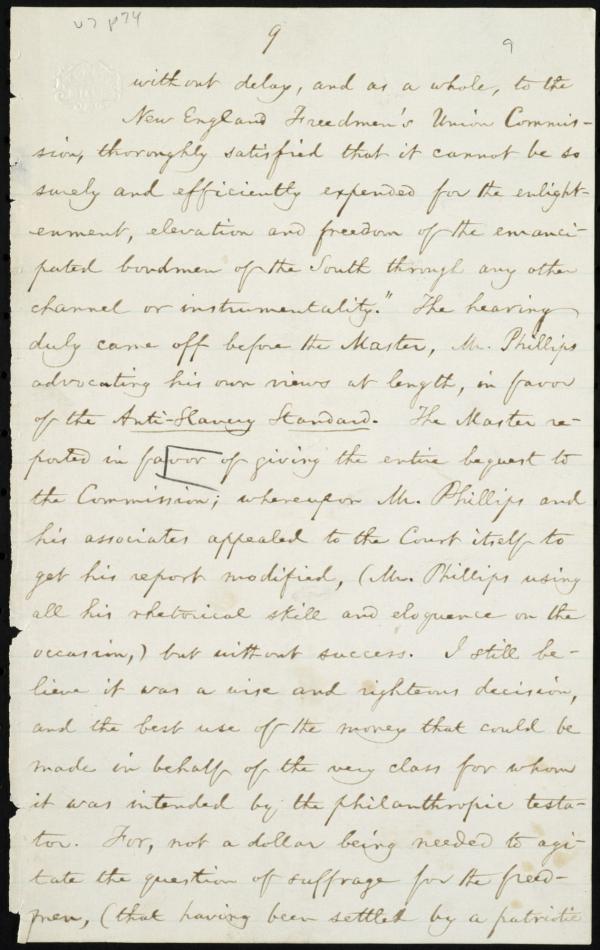 v7 p74
9
9
without delay, and as a whole, to the
New England Freedmen's Union Commis-
sion, thoroughly satisfied that it cannot be so
surely and efficiently expended for the enlight-
enment, elevation and freedom of the emanci-
pated bondmen of the South through any other
channel or instrumentality." The hearing
duly came off before the Master, Mr. Phillips
advocating his own views at length, in favor
of the Anti-Slavery Standard. The Master re-
ported in favor of giving the entire bequest to
the Commission; whereupon Mr. Phillips and
his associates appealed to the Court itself to
get his report modified, (Mr. Phillips using
all his rhetorical skill and eloquence on the
occasion,) but without success. I still be-
lieve it was a wise and righteous decision,
and the best use of the money that could be
made in behalf of the very class for whom
it was intended by the philanthropic testa-
tor. For, not a dollar being needed to agi-
tate the question of suffrage for the freed-
men, (that having been settled by a patriotic